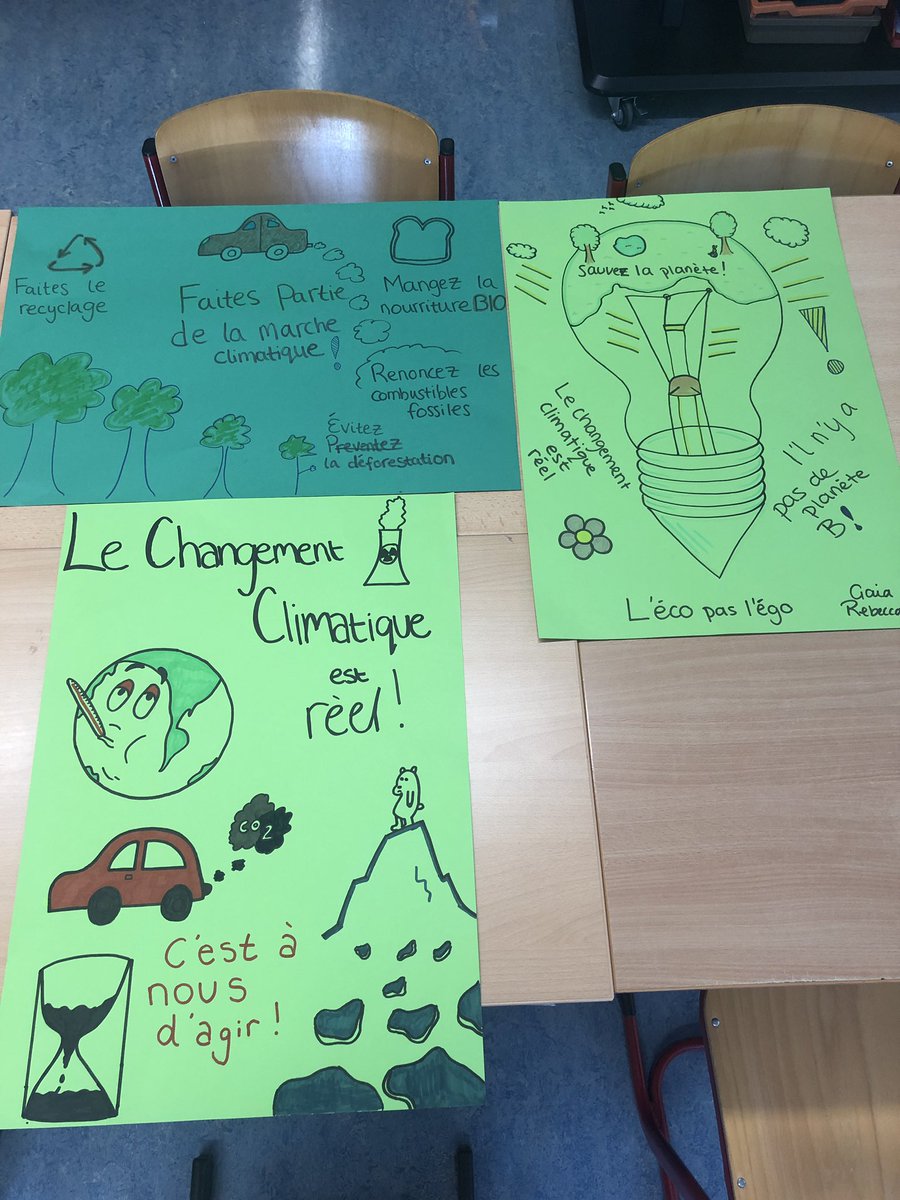 Faites le
recyclage
Faites Partie
de la marche
climatique !
Mangez la
nourriture BIO
Renoncez les
combustibles
fossiles
Évitez
Preventez
la déforestation
Sauvez la planète !
Le changement
climatique
est
réel
Il n'y a
pas de
planète
B !
L'éco pas l'égo
Gaia
Rebecca
Le Changement
Climatique
est
rèel !
CO2
C'est à
nous
d'agir !